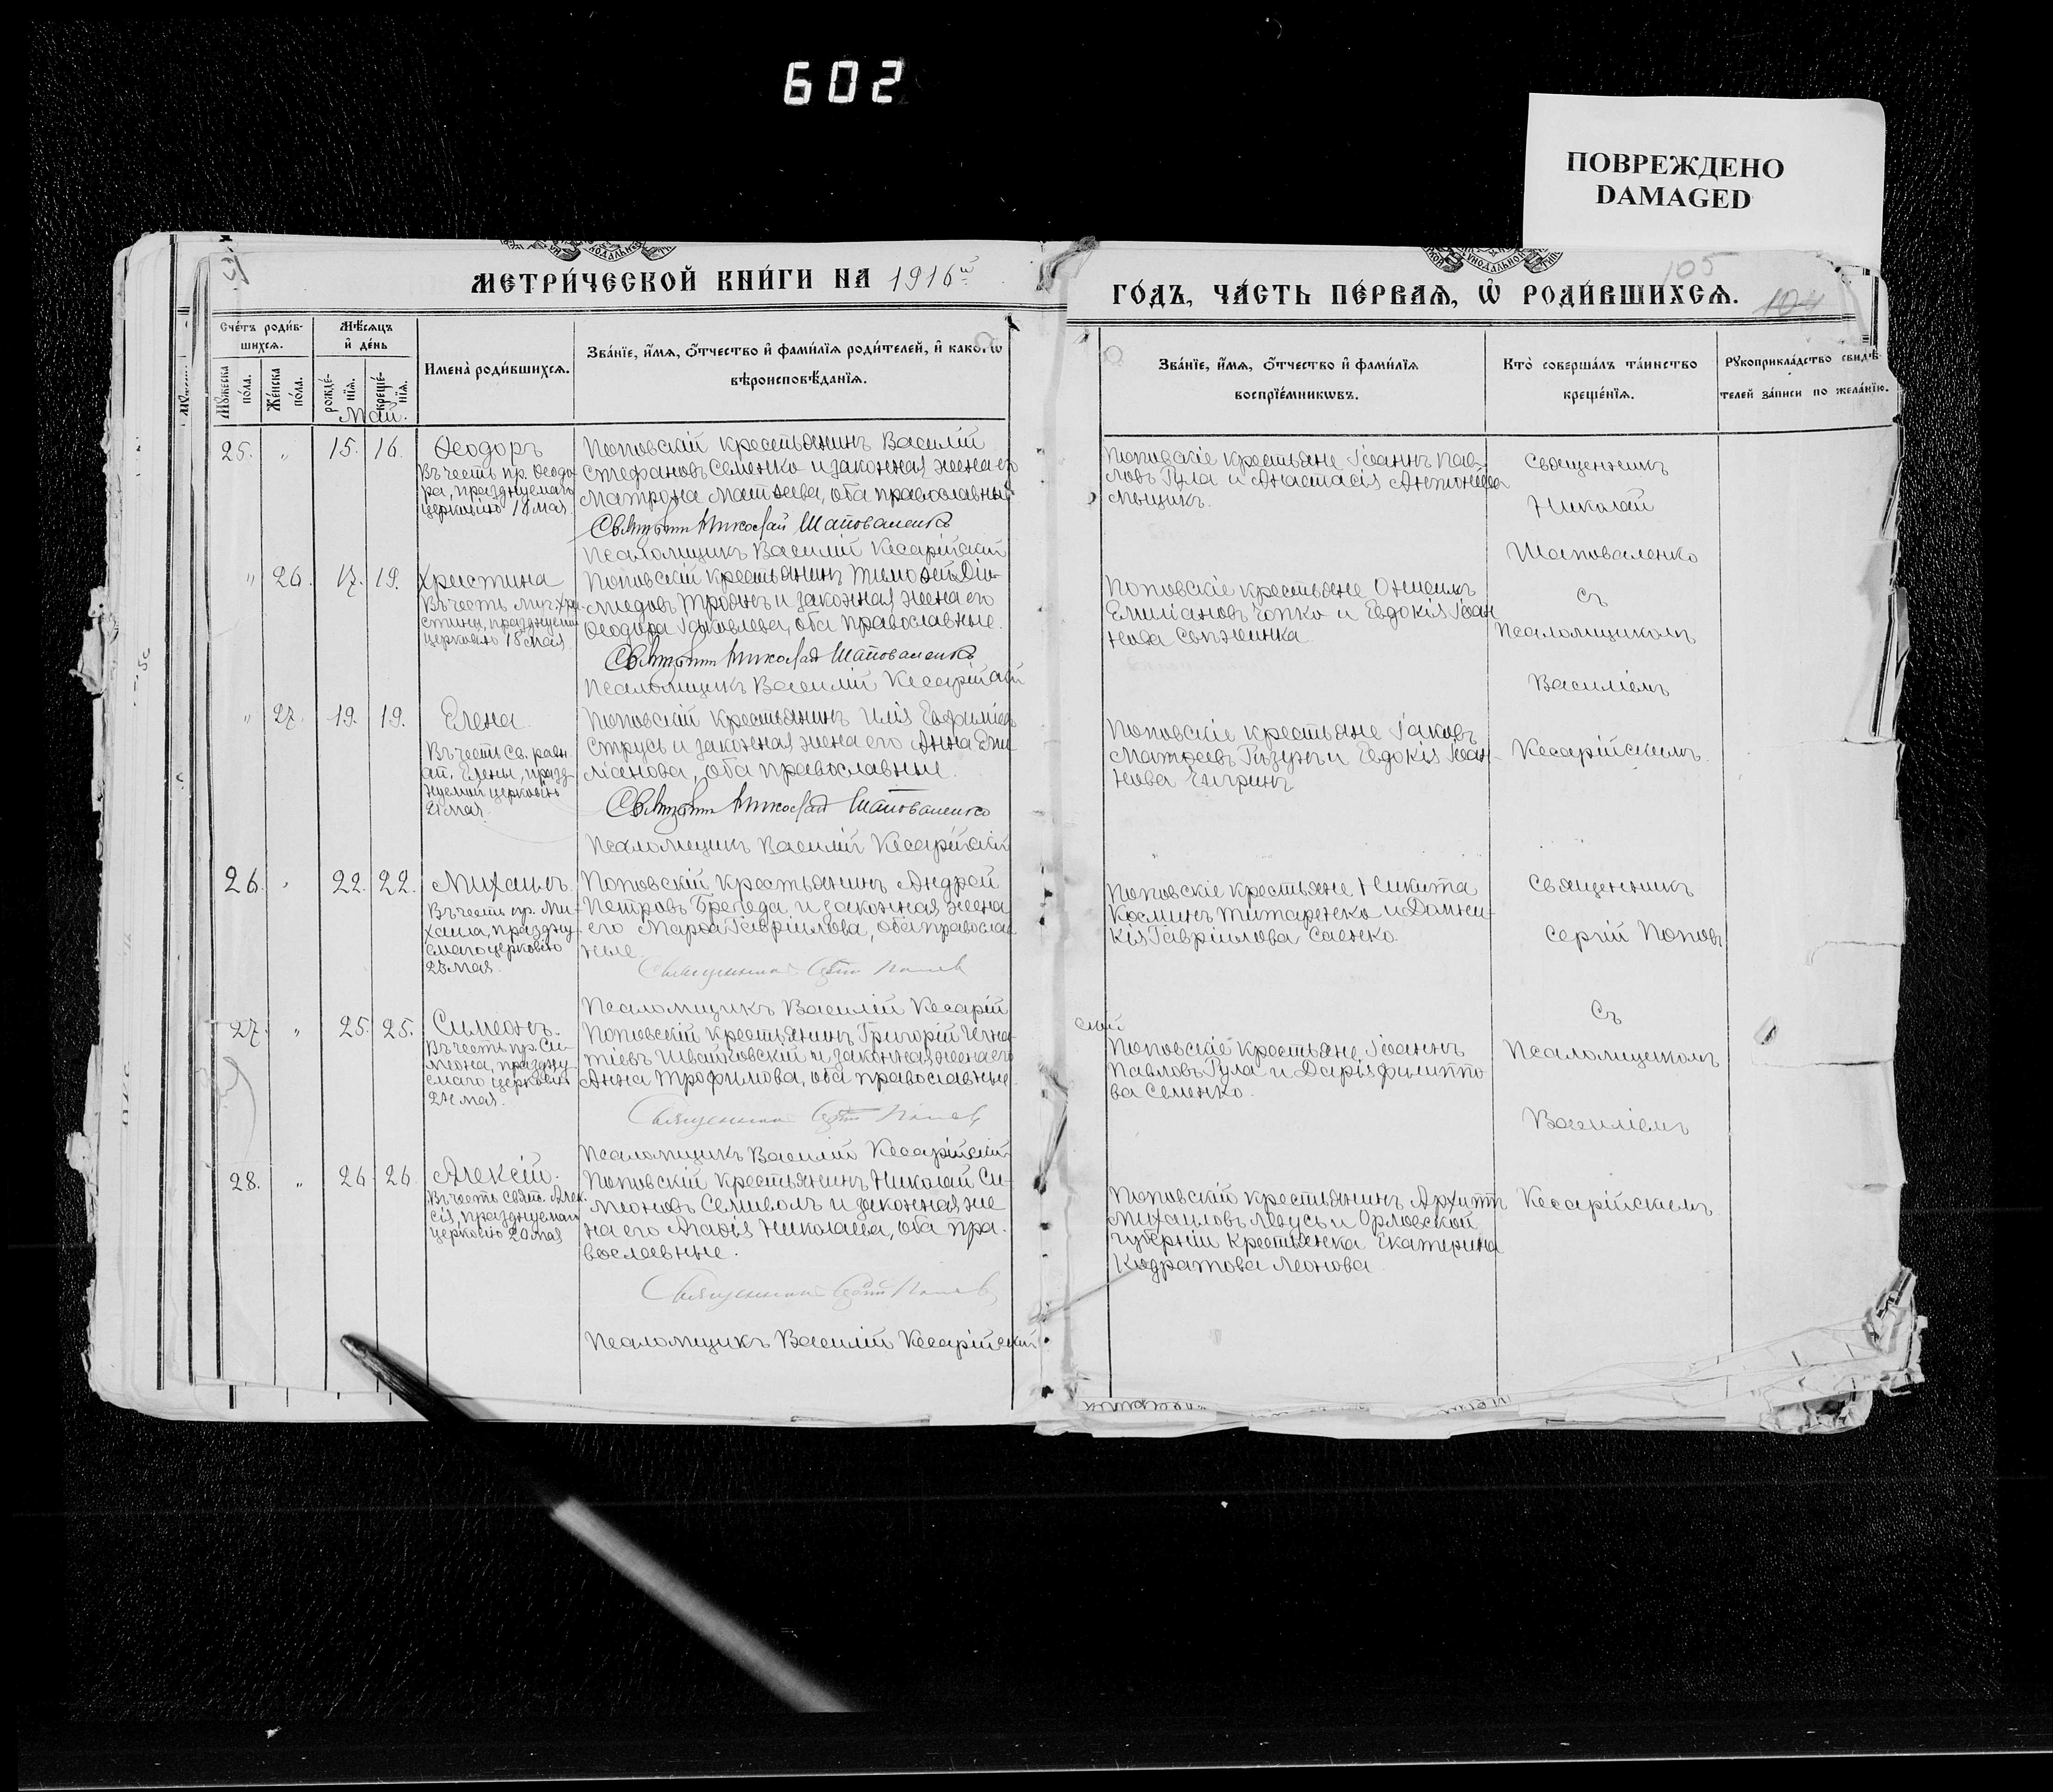 602
ПОВРЕЖДЕНО
DAMAGED
МЕТРИ́ЧЕСКОЙ КНИ́ГИ НА 1916й
ГО́ДЪ, ЧА́СТЬ ПЕ́РВАѦ, Ѡ҆ РОДИ́ВШИХСѦ.
105
104
Сче́тъ роди́в-
шихсѧ.
Мѣ́сѧцъ
и҆ де́нь
Имена̀ роди́вшихсѧ.
Зва́нїе, и҆́мѧ, ѻ҆́тчество и҆ фами́лїѧ роди́телей, и҆ како́гѡ
вѣроисповѣ́данїѧ.
Мꙋ́жеска
по́ла.
Же́нска
по́ла.
рожде́-
нїѧ.
креще́-
нїѧ.
Май.
Зва́нїе, и҆́мѧ, ѻ҆́тчество и҆ фами́лїѧ
воспрїе́мникѡвъ.
Кто̀ соверша́лъ та́инство
креще́нїѧ.
Рꙋкоприкла́дство свидѣ́-
телей за́писи по жела́нїю.
25. " 15. 16. Ѳеодоръ
Въ честь пр. Ѳеодо-
ра, празднуемаго
церковію 18 мая.
Поповскій крестьянинъ Василій
Стефановъ Семенко и законная жена его
Матрона Матѳеева, оба православные
Священникъ Николай Шаповаленко
Псаломщикъ Василій Кесарійскій
Поповскіе крестьяне Іоаннъ Пав-
ловъ Гула и Анастасія Антоніева
Священникъ
Николай
Шаповаленко
съ
Псаломщикомъ
Василіемъ
Кесарійскимъ.
" 26. 17. 19. Христина
Въ честь муч. Хри-
стины, празднуемой
церковію 18 мая.
Поповскій крестьянинъ Тимоѳей Діо-
мидовъ Троянъ и законная жена его
Ѳеодора Іаковлева, оба православные.
Священникъ Николай Шаповаленко
Псаломщикъ Василій Кесарійскій
Поповскіе крестьяне
Емиліановъ Чопко и Евдокія Іоан
нова
" 27. 19. 19. Елена.
Въ честь Св. равн.
ап. Елены, празд-
нуемой церковію
21 мая.
Поповскій крестьянинъ Илія Евфиміевъ
Струсь и законная жена его Анна Еми
ліанова, оба православные.
Священникъ Николай Шаповаленко
Псаломщикъ Василій Кесарійскій
Поповскіе крестьяне Іаковъ
Матѳеевъ и Евдокія Іоан-
нова
26. " 22. 22. Михаилъ.
Въ честь пр. Ми-
хаила, праздну-
емаго церковію
23 мая.
Поповскій крестьянинъ Андрей
Петровъ Брегеда и законная жена
его Марѳа Гавріилова, оба православ-
ные.
Священникъ Сергій Поповъ
Псаломщикъ Василій Кесарій
скій
Поповскіе крестьяне Никита
Косминъ Титаренко и Домни-
кія Гавріилова Саенко.
Священникъ
Сергій Поповъ
съ
Псаломщикомъ
Василіемъ
Кесарійскимъ
27. " 25. 25. Симеонъ.
Въ честь пр. Си-
меона, праздну
емаго церковію
24 мая.
Поповскій крестьянинъ Григорій Игна-
тіевъ Ивашковскій и законная жена его
Анна Трофимова, оба православные.
Священникъ Сергій Поповъ
Псаломщикъ Василій Кесарійскій
Поповскіе крестьяне Іоаннъ
Павловъ Гула и Дарія Филиппо
ва Семенко.
28. " 26. 26. Алексій.
Въ честь Свят. Алек-
сія, празднуемаго
церковію 20 мая
Поповскій крестьянинъ Николай Си-
меоновъ Семиволъ и законная же
на его Агаѳія Николаева, оба пра-
вославные.
Священникъ Сергій Поповъ
Псаломщикъ Василій Кесарійскій
Поповскій крестьянинъ Архиппъ
Михаиловъ и Орловской
губерніи крестьянка Екатерина
Кодратова Леонова.